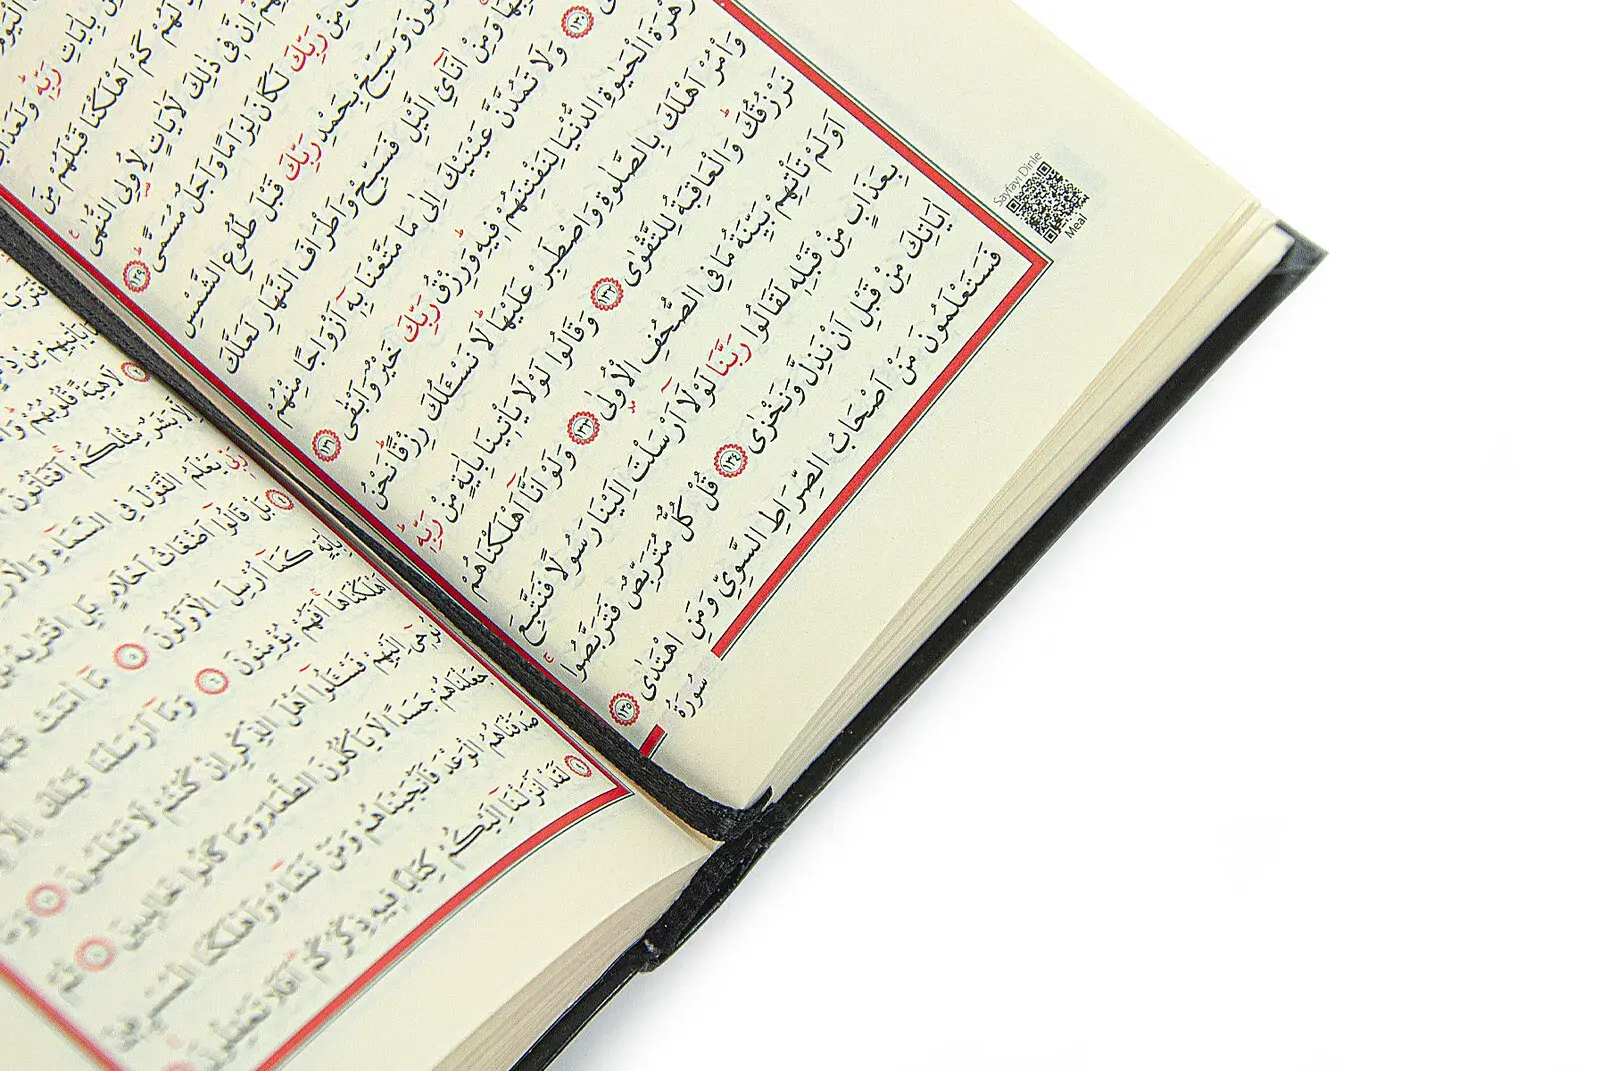 بِاٰيَاتِ رَبِّهٖ وَلَعَذَابُ
لَهُمْ كَمْ اَهْلَكْنَا قَبْلَهُمْ مِنَ
اِنَّ فٖى ذٰلِكَ لَاٰيَاتٍ لِاُولِى النُّهٰى
مِنْ رَبِّكَ لَكَانَ لِزَامًا وَاَجَلٌ مُسَمًّى ١٢٩
وَسَبِّحْ بِحَمْدِ رَبِّكَ قَبْلَ طُلُوعِ الشَّمْسِ
وَمِنْ اٰنَٓائِ الَّيْلِ فَسَبِّحْ وَاَطْرَافَ النَّهَارِ لَعَلَّكَ
١٣٠ وَلَا تَمُدَّنَّ عَيْنَيْكَ اِلٰى مَا مَتَّعْنَا بِهٖٓ اَزْوَاجًا مِنْهُمْ
زَهْرَةَ الْحَيٰوةِ الدُّنْيَا لِنَفْتِنَهُمْ فٖيهِ وَرِزْقُ رَبِّكَ خَيْرٌ وَاَبْقٰى ١٣١
وَاْمُرْ اَهْلَكَ بِالصَّلٰوةِ وَاصْطَبِرْ عَلَيْهَا لَا نَسْـَٔلُكَ رِزْقًا نَحْنُ
نَرْزُقُكَ وَالْعَاقِبَةُ لِلتَّقْوٰى ١٣٢ وَقَالُوا لَوْلَا يَاْتٖينَا بِاٰيَةٍ مِنْ رَبِّهٖ
اَوَلَمْ تَاْتِهِمْ بَيِّنَةُ مَا فِى الصُّحُفِ الْاُولٰى ١٣٣ وَلَوْ اَنَّٓا اَهْلَكْنَاهُمْ
بِعَذَابٍ مِنْ قَبْلِهٖ لَقَالُوا رَبَّنَا لَوْلَٓا اَرْسَلْتَ اِلَيْنَا رَسُولًا فَنَتَّبِعَ
اٰيَاتِكَ مِنْ قَبْلِ اَنْ نَذِلَّ وَنَخْزٰى ١٣٤ قُلْ كُلٌّ مُتَرَبِّصٌ فَتَرَبَّصُوا
فَسَتَعْلَمُونَ مَنْ اَصْحَابُ الصِّرَاطِ السَّوِىِّ وَمَنِ اهْتَدٰى ١٣٥
سُورَةُ
Sayfayı Dinle
Meal
لَاهِيَةً قُلُوبُهُمْ
مِثْلُكُمْ اَفَتَاْتُونَ
يَعْلَمُ الْقَوْلَ فِى السَّمَٓاءِ وَالْاَرْضِ
بَلْ قَالُٓوا اَضْغَاثُ اَحْلَامٍ بَلِ افْتَرٰيهُ بَلْ
كَمَٓا اُرْسِلَ الْاَوَّلُونَ ٥ مَٓا اٰمَنَتْ قَبْلَهُمْ
اَهْلَكْنَاهَا اَفَهُمْ يُؤْمِنُونَ ٦ وَمَٓا اَرْسَلْنَا قَبْلَكَ اِلَّا
نُوحٖٓى اِلَيْهِمْ فَسْـَٔلُٓوا اَهْلَ الذِّكْرِ اِنْ كُنْتُمْ لَا تَعْلَمُونَ ٧ وَمَا
جَعَلْنَاهُمْ جَسَدًا لَا يَاْكُلُونَ الطَّعَامَ وَمَا كَانُوا خَالِدٖينَ ٨ ثُمَّ
صَدَقْنَاهُمُ الْوَعْدَ فَاَنْجَيْنَاهُمْ وَمَنْ نَشَٓاءُ وَاَهْلَكْنَا الْمُسْرِفٖينَ
٩ لَقَدْ اَنْزَلْنَٓا اِلَيْكُمْ كِتَابًا فٖيهِ ذِكْرُكُمْ اَفَلَا تَعْقِلُونَ